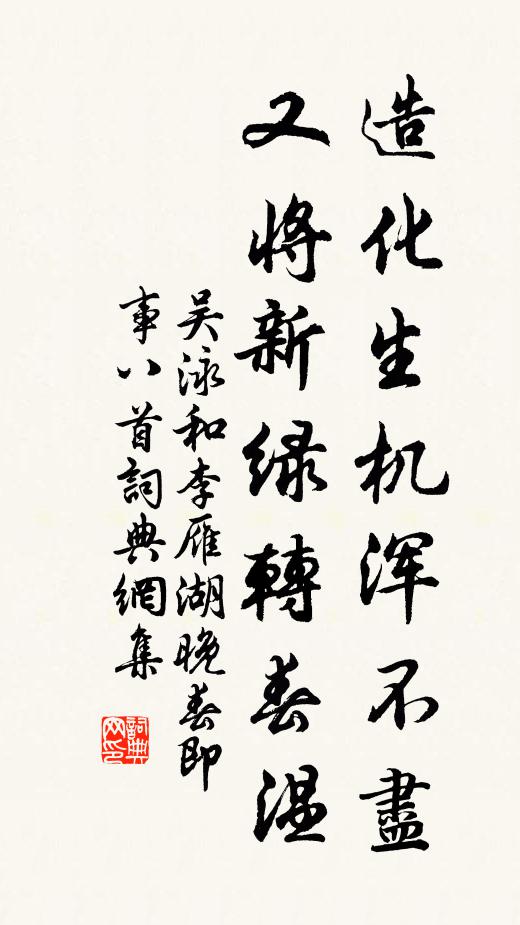 造化生机浑不盡
又将新绿轉春温
吴泳和李雁湖晚春即
事八首詞典網集
詞典
网印